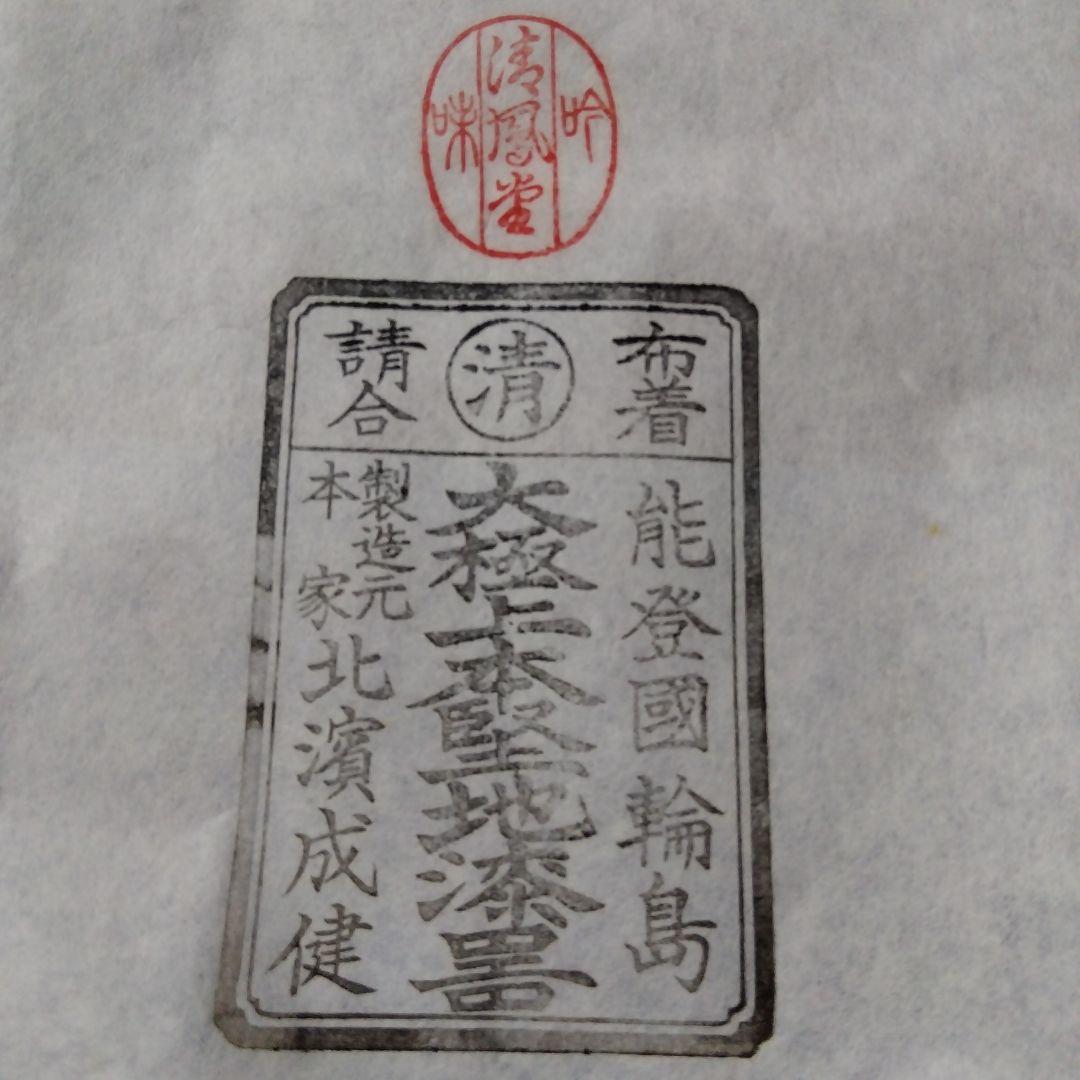 吟
清鳳堂
味
布着
清
請合
能登國輪島
大極上本堅地漆器
製造元
本家
北濱成健